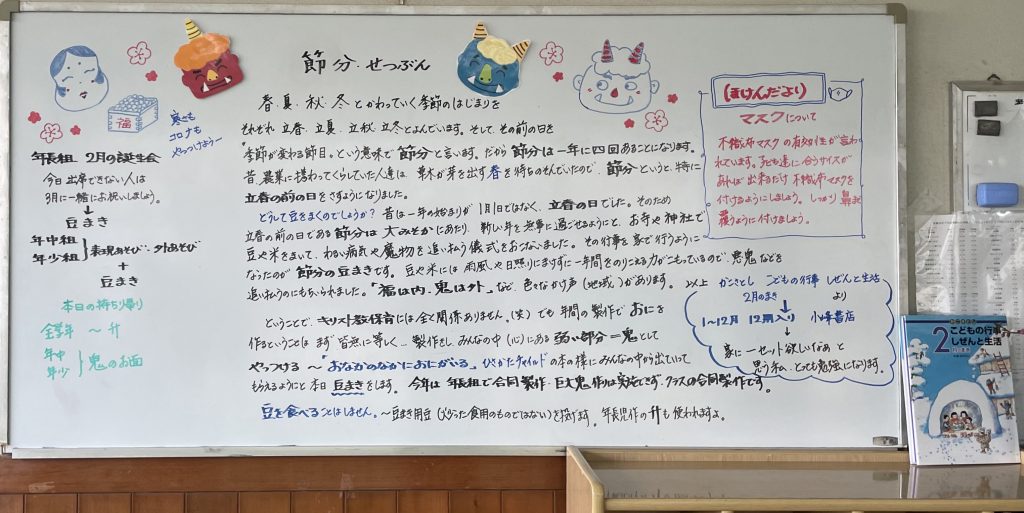 節分・せつぶん
春、夏、秋、冬とかわっていく季節のはじまりを
それぞれ立春、立夏、立秋、立冬とよんでいます。そして、その前の日を
「季節が変わる節目。という意味で節分と言います。だから節分は一年に四回あることになります。
昔、農業に携わってくらしていた人達は、草木が芽を出す春を待ちのぞんでいたので、節分というと、特に
立春の前の日をさすようになりました。
どうして豆をまくのでしょうか？昔は一年の始まりが1月1日ではなく、立春の日でした。そのため
立春の前の日である節分は大みそかにあたり、新しい年を無事に過ごせるようにと、お寺や神社で
豆や米をまいて、わるい病気や魔物を追い払う儀式をおこないました。その行事を家で行うように
なったのが節分の豆まきです。豆や米には雨風や日照りにまけずに一年間をのりこえる力がこもっているので、悪鬼などを
追い払うのにもちいられました。「福は内、鬼は外」など、色々なかけ声(地域)があります。以上
ということで、キリスト教保育には全く関係ありません。(笑)でも年間の製作でおにを
作るということは、まず皆無に等しく…製作をし、みんなの中(心)にある弱い部分=鬼として
やっつける〜「おなかのなかにおにがいる」ひさかたチャイルドの本の様にみんなの中から出ていって
もらえるようにと本日豆まきをします。今年は年長組で合同製作・巨大鬼作りは実施できず、クラスの合同製作です。
豆を食べることはしません。〜豆まき用豆(炒った食用のものではない)を投げます。年長児作の升も使われますよ。
福
寒さも
コロナも
やっつけよう〜
年長組 2月の誕生会
今日出席できない人は
3月に一緒にお祝いしましょう。
↓
豆まき
年中組
年少組
表現あそび・外あそび
+
豆まき
本日の持ち帰り
年長 〜 升
年中
年少
鬼のお面
ほけんだより
マスクについて
不織布マスクの有効性が言わ
れています。子ども達に合うサイズが
あれば出来るだけ不織布マスクを
付けるようにしましょう。しっかり鼻まで
覆うように付けましょう。
かこさとし こどもの行事 しぜんと生活
2月のまき より
↓
1〜12月 12冊入り 小峰書店
↓
家に一セット欲しいなぁと
思う私、とても勉強になります。
2
こどもの行事
しぜんと生活